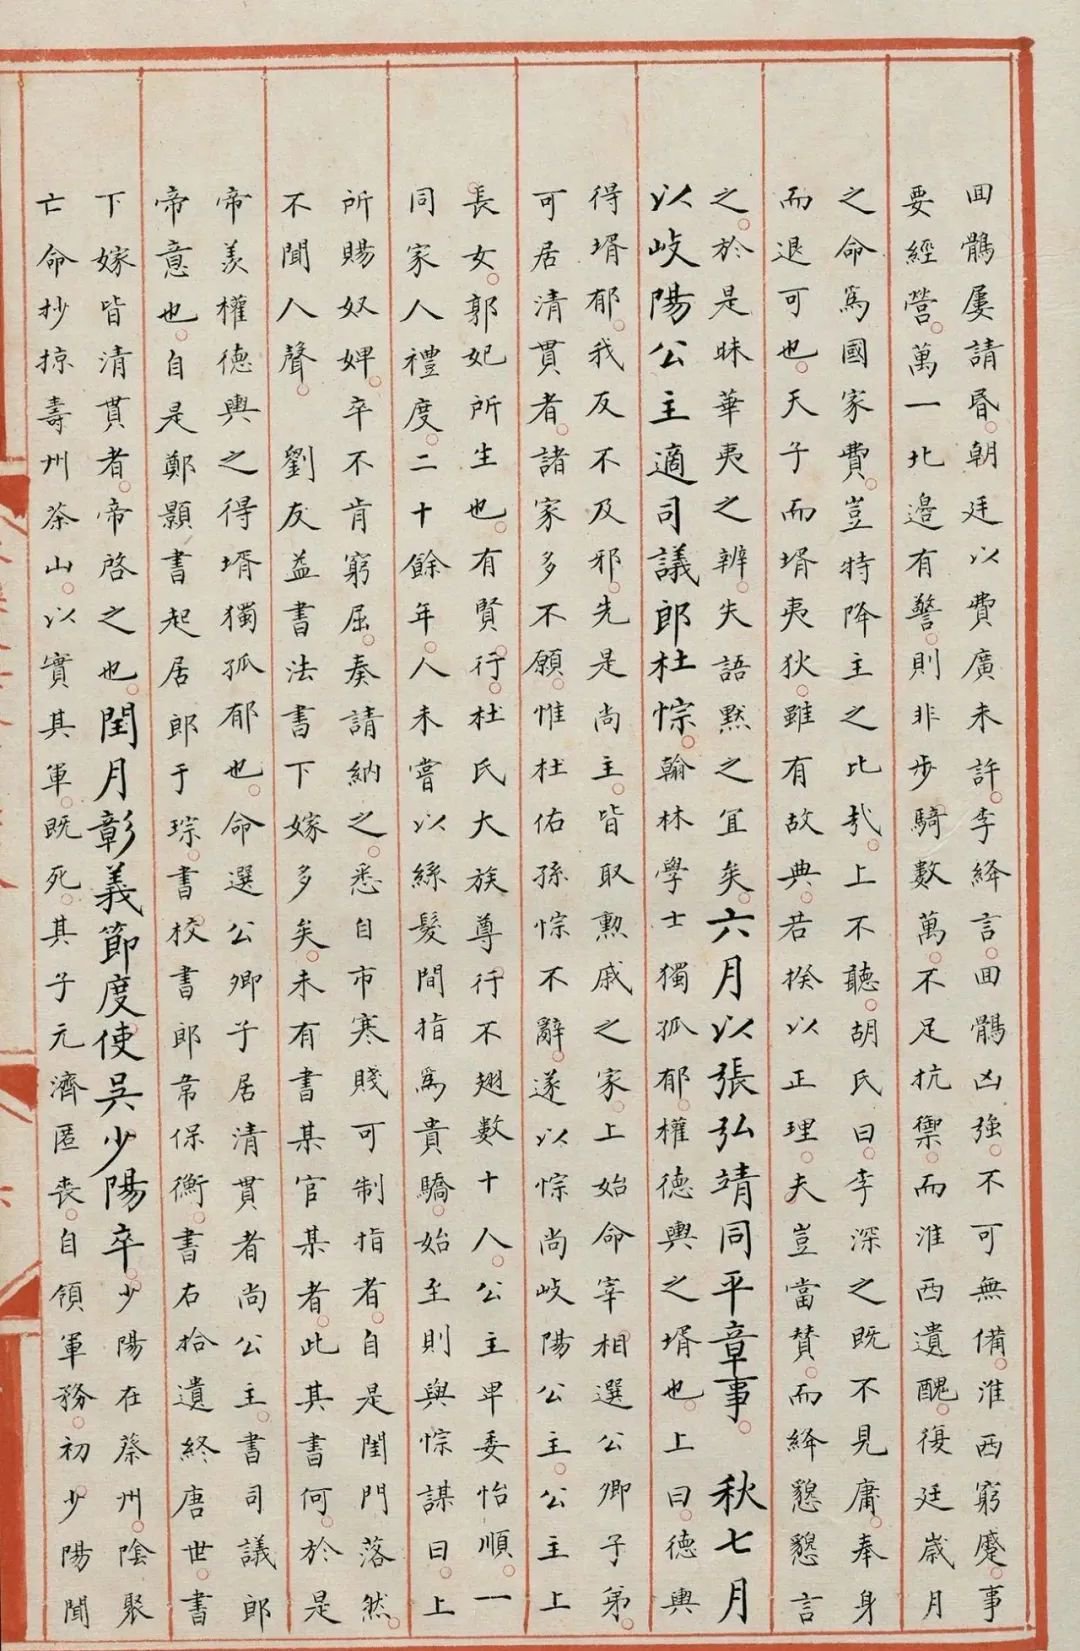 回鶻屢請昏。朝廷以費廣未許。李絳言。回鶻凶強。不可無備。淮西窮蹙。事
要經營。萬一北邊有警。則非步騎數萬。不足抗禦。而淮西遺醜。復延歲月
之命。為國家費。豈特降主之比哉。上不聽。胡氏曰。李深之既不見庸。奉身
而退可也。天子而壻夷狄。雖有故典。若揆以正理。夫豈當贊。而絳懇懇言
之。於是昧華夷之辨。失語默之宜矣。六月以張弘靖同平章事。 秋七月
以岐陽公主適司議郎杜悰。翰林學士獨孤郁。權德輿之壻也。上曰。德輿
得壻郁。我反不及邪。先是尚主。皆取勲戚之家。上始命宰相選公卿子弟。
可居清貫者。諸家多不願。惟杜佑孫悰不辭。遂以悰尚岐陽公主。公主上
長女。郭妃所生也。有賢行。杜氏大族尊行不翅數十人。公主卑委怡順。一
同家人禮度。二十餘年。人未嘗以絲髮間指為貴驕。始至則與悰謀曰。上
所賜奴婢。卒不肯窮屈。奏請納之。悉自市寒賤可制指者。自是閨門落然。
不聞人聲。 劉友益書法書下嫁多矣。未有書某官某者。此其書何。於是
帝羨權德輿之得壻獨孤郁也。命選公卿子居清貫者尚公主。書司議郎
帝意也。自是鄭顥書起居郎于琮。書校書郎韋保衡。書右拾遺終唐世。書
下嫁皆清貫者。帝啓之也。閏月彰義節度使吳少陽卒。少陽在蔡州。陰聚
亡命抄掠壽州茶山。以實其軍。既死。其子元濟匿喪。自領軍務。初少陽聞